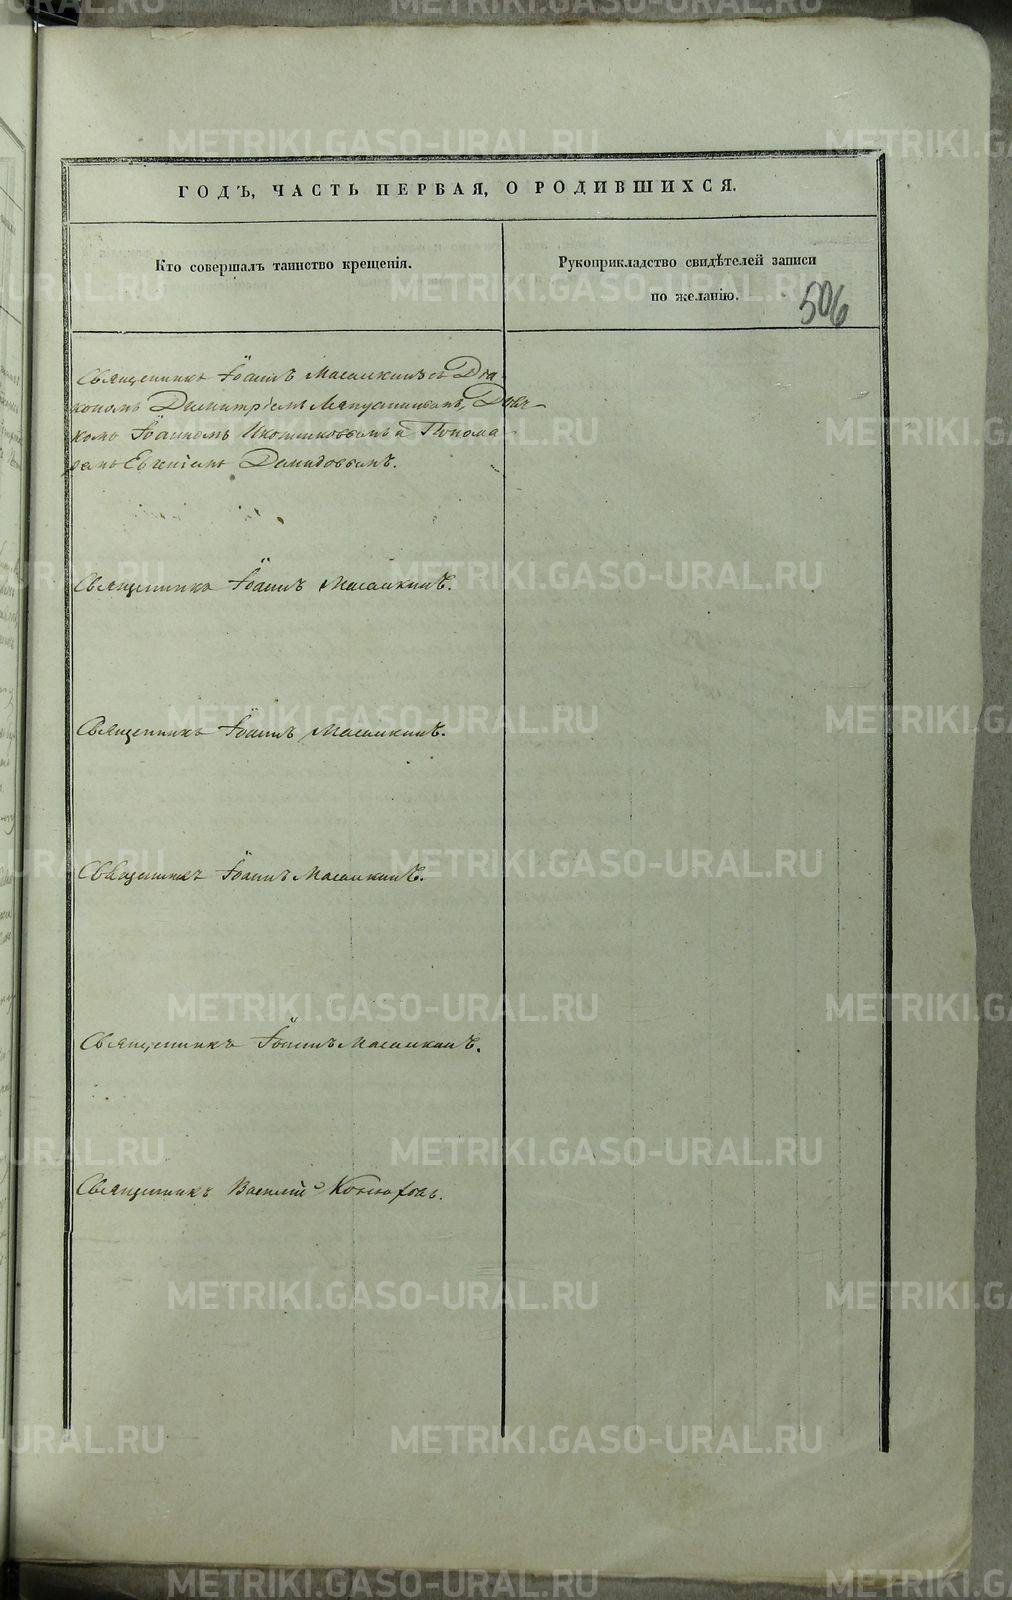 ГОДЪ, ЧАСТЬ ПЕРВАЯ, О РОДИВШИХСЯ.
Кто совершалъ таинство крещенія.
Рукоприкладство свидѣтелей записи
по желанію.
506
Священникъ Іоаннъ Масалкинъ съ Діа-
кономъ Димитріемъ Ляпустинымъ, Дьяч-
комъ Іоанномъ Иконниковымъ и Понома-
ремъ Евгеніемъ Демидовымъ.
Священникъ Іоаннъ Масалкинъ.
Священникъ Іоаннъ Масалкинъ.
Священникъ Іоаннъ Масалкинъ.
Священникъ Іоаннъ Масалкинъ.
Священникъ Василій
METRIKI.GASO-URAL.RU